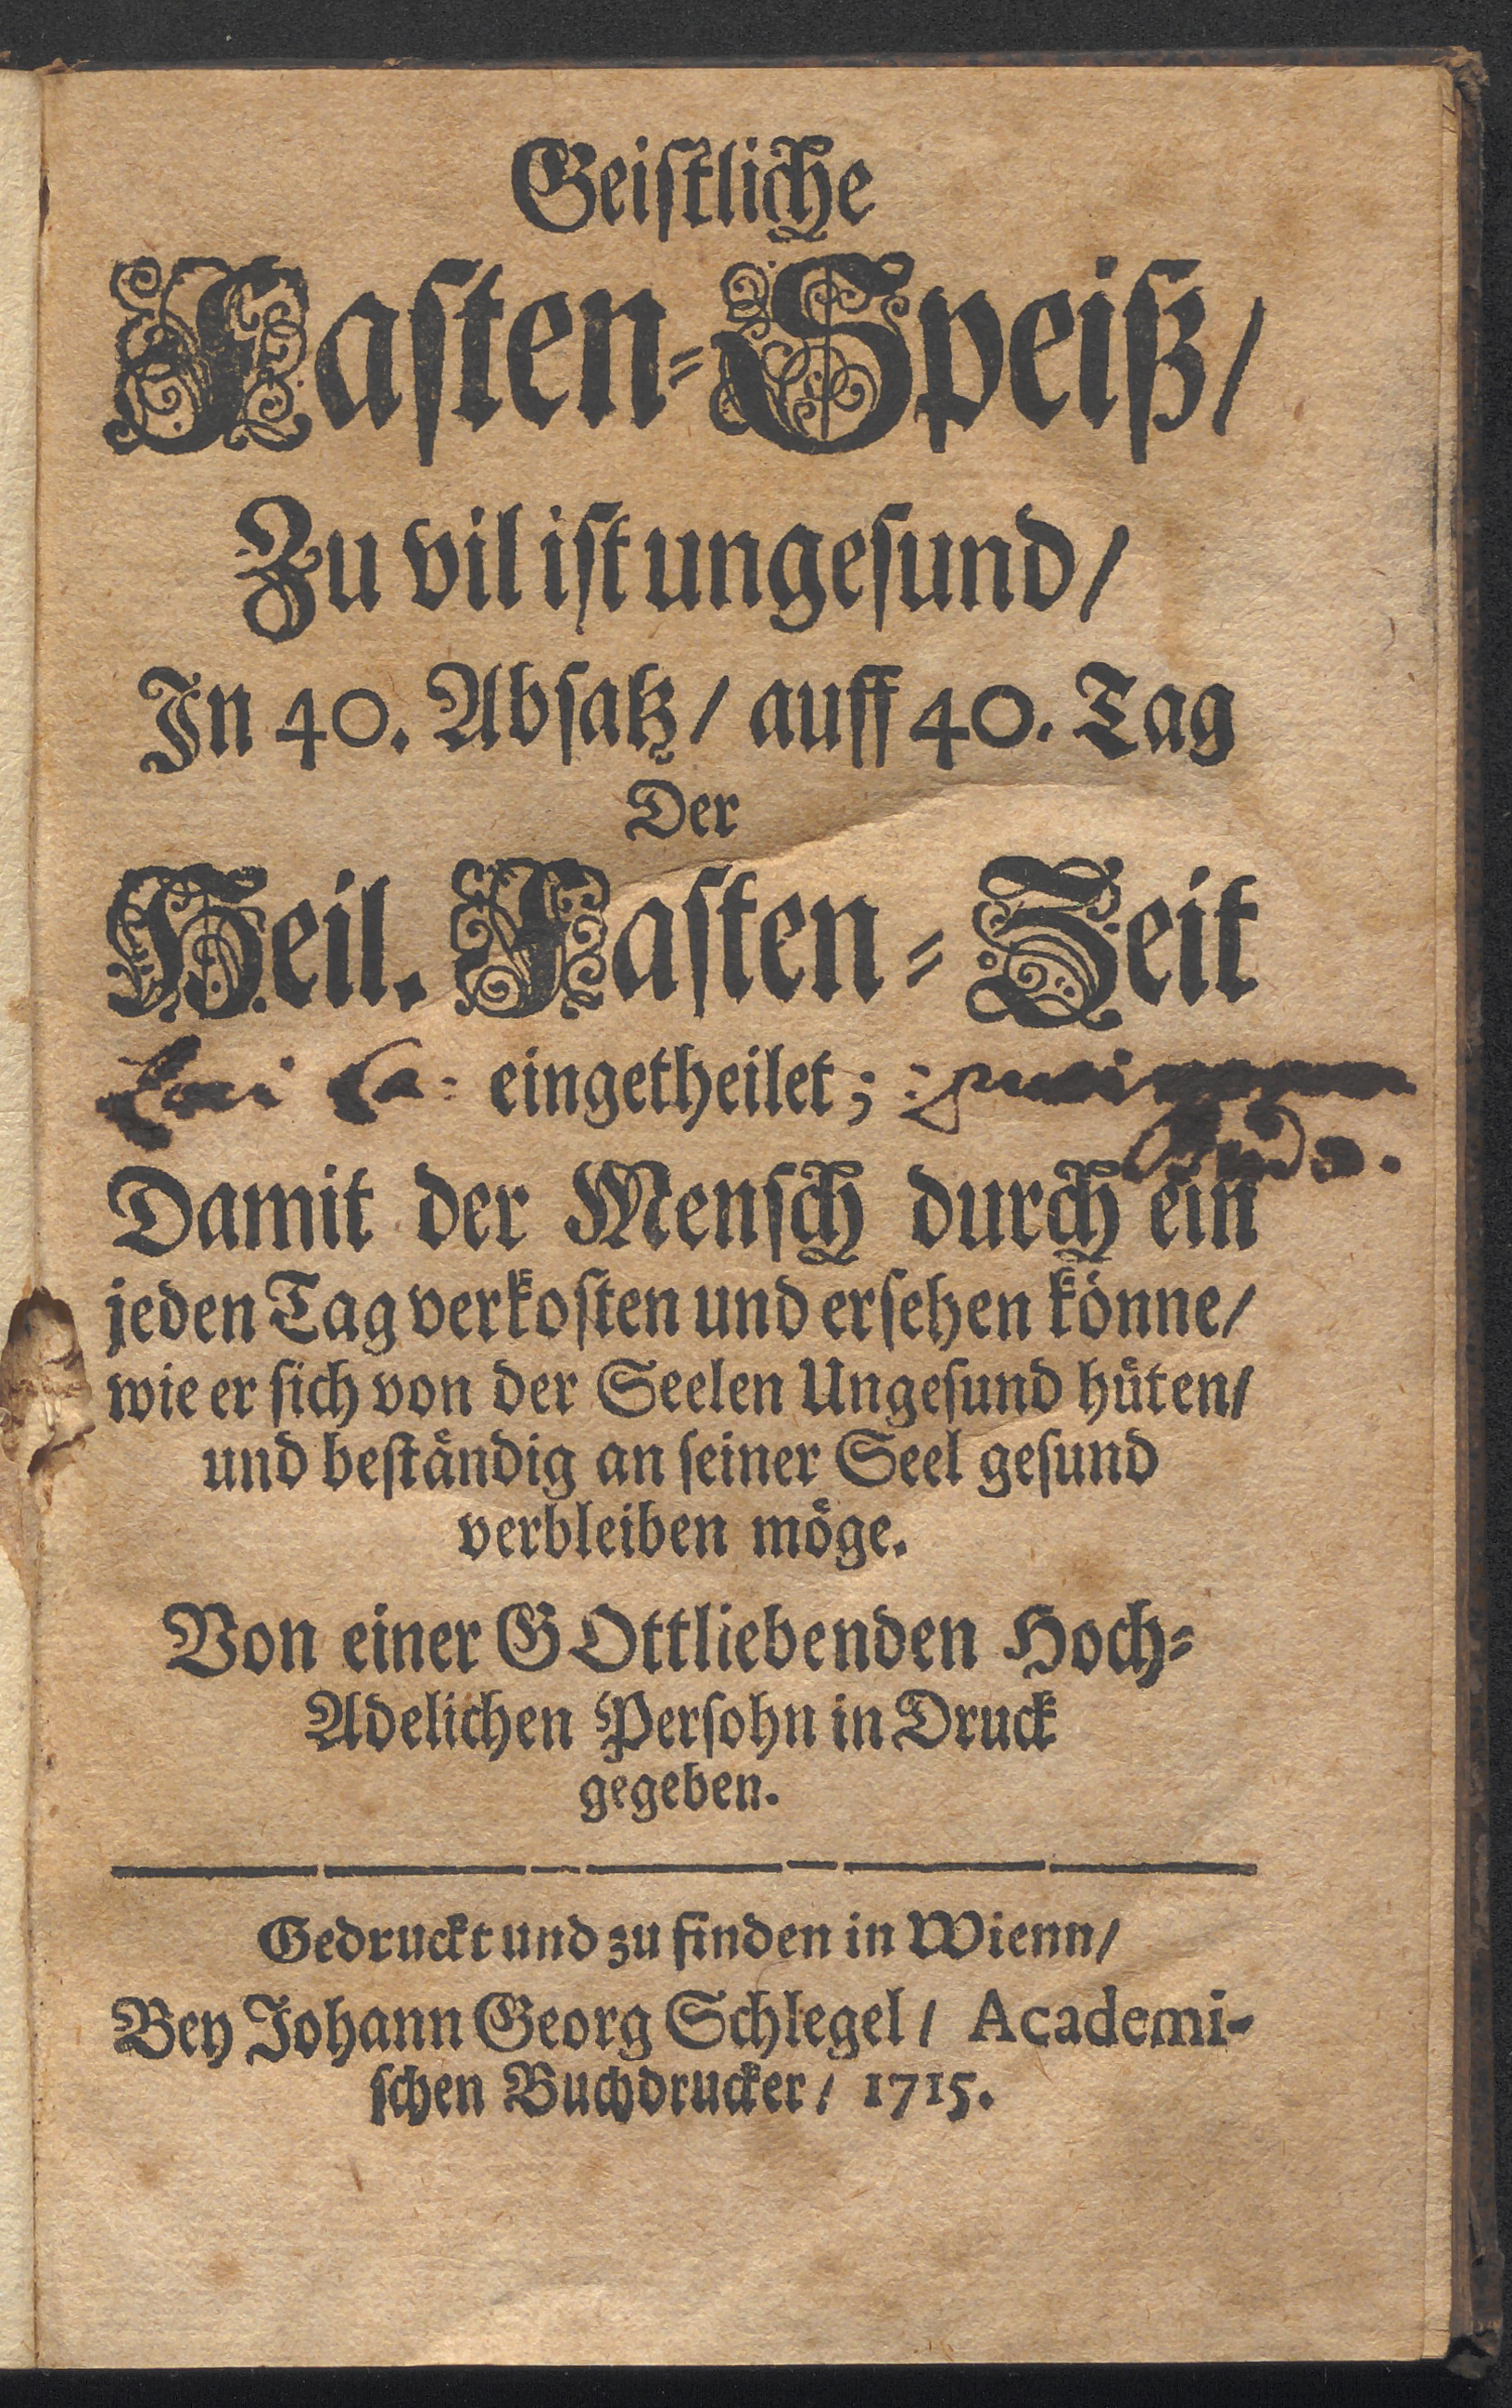 Geistliche
Fasten-Speiß/
Zu vil ist ungesund/
In 40. Absatz/ auff 40. Tag
Der
Heil. Fasten-Zeit
eingetheilet;
Damit der Mensch durch ein
jeden Tag verkosten und ersehen könne/
wie er sich von der Seelen Ungesund hüten/
und beständig an seiner Seel gesund
verbleiben möge.
Von einer GOttliebenden Hoch-
Adelichen Persohn in Druck
gegeben.
Gedruckt und zu finden in Wienn/
Bey Johann Georg Schlegel/ Academi-
schen Buchdrucker/ 1715.